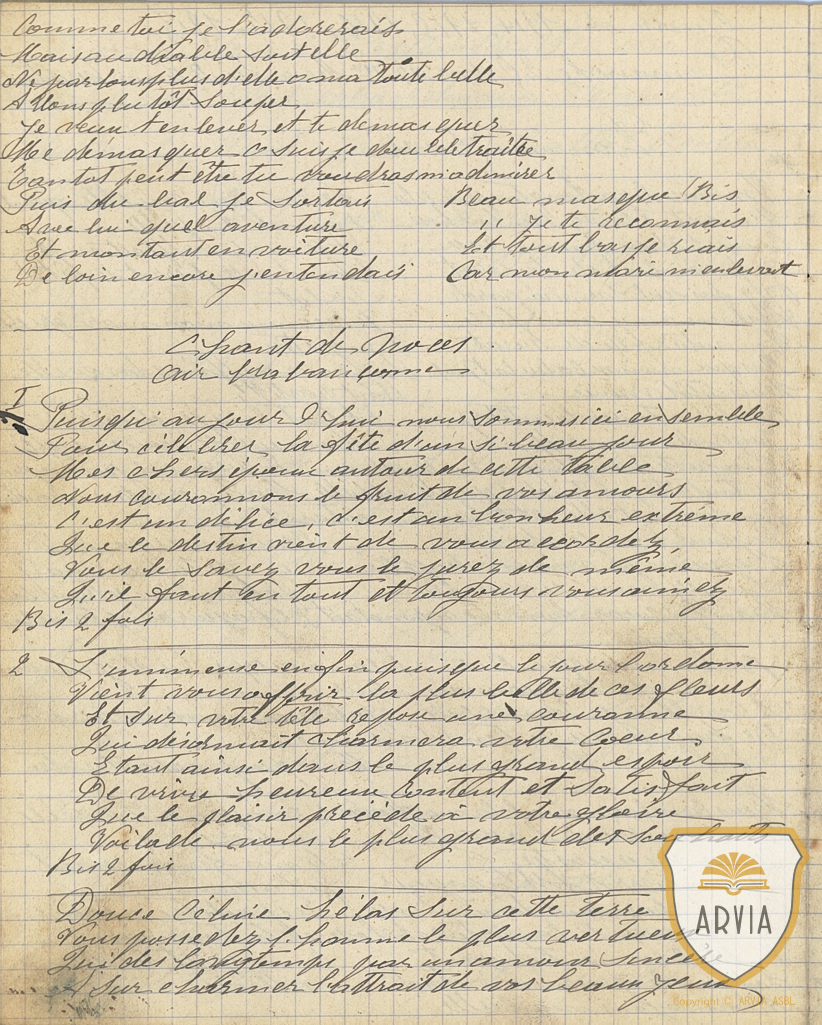 Comme toi je l'adorerais
Mais au diable soit elle
Ne parlons plus d'elle o ma toute belle
Allons plutôt souper
Je veux t'enlever et te demasquer
Me démasquer
Tantot peut être tu voudras m'admirer
Puis du bal je sortais
Avec lui quel aventure
Et montant en voiture
De loin encore j'entendais
Beau masque (Bis
,, je te reconnais
Et tout bas je riais
Car mon mari m'enlevait.
Chant de Noces.
Air brabançonne
I Puisqu'au jour d'hui nous sommes ici ensemble
Pour célébrer la fête d'un si beau jour
Mes chers époux autour de cette table
Nous couronnons le fruit de vos amours
C'est un délice, c'est un bonheur extréme
Que le destin vient de vous accordez
Vous le savez vous le jurez de même
Qu'il faut en tout et toujours vous aimez
Bis 2 fois
2 L'uminense enfin puisque le jour l'ordonne
Vient vous offrir la plus belle de ces fleurs
Et sur votre tête repose une couronne
Qui désormait charmera votre coeur
Etant ainsi dans le plus grand espoir
De vivre heureux content et satisfait
Que le plaisir précède à votre gloire
Voilade nous le plus grand des souhaits
Bis 2 fois
Douce Céline hélas sur cette terre
Vous possedez l'homme le plus vertueux
Qui dès longtemps par un amour sincère
A sur charmer l'attrait de vos beaux yeux
ARVIA
Copyright © ARVIA ASBL